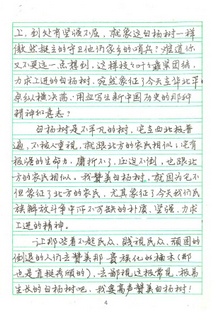 上,到处有坚强不屈,就象这白杨树一样
傲然挺立的守卫他们家乡的哨兵!难道你
又不更远一点想到,这样枝枝叶叶靠紧团结,
力求上进的白杨树,宛然象征了今天在华北平
原纵横决荡,用血写出新中国历史的那种
精神和意志?
白杨树是不平凡的树,它在西北极普遍
,不被人重视,就跟北方的农民相似;它有
极强的生命力,磨折不了,压迫不倒,也跟北
方的农民相似。我赞美白杨树,就因为它不
但象征了北方的农民,尤其象征了今天我们民
族解放斗争中所不可缺的朴质、坚强、力求
上进的精神。
让那些看不起民众、贱视民众、顽固的
倒退的人们去赞美那贵族化的楠木(那
也是直挺秀颀的),去鄙视这极常见、极易
生长的白杨树吧,我要高声赞美白杨树!
4